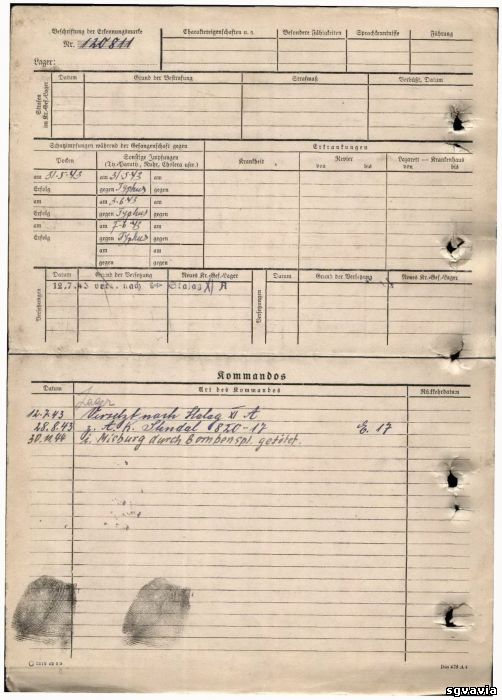 Beschriftung der Erkennungsmarke
Nr. 120811
Lager:
Charaktereigenschaften u. s.
Besondere Fähigkeiten
Sprachkenntnisse
Führung
Strafen im Kr.-Gef.-Lager
Datum
Grund der Bestrafung
Strafmaß
Verbüßt, Datum
Schutzimpfungen während der Gefangenschaft gegen
Erkrankungen
Pocken
Sonstige Impfungen
(Ty.-Paraty., Ruhr, Cholera usw.)
Krankheit
Revier
von bis
Lazarett — Krankenhaus
von bis
am 31.5.43 am 31.5.43
Erfolg gegen Typhus gegen
am am 3.6.43
Erfolg gegen Typhus gegen
am am 7.6.43
Erfolg gegen Typhus gegen
am am
gegen gegen
Versetzungen
Datum
Grund der Versetzung
Neues Kr.-Gef.-Lager
12.7.43 nach Stalag XI A
Versetzungen
Datum
Grund der Versetzung
Neues Kr.-Gef.-Lager
Kommandos
Datum
Art des Kommandos
Rückkehrdatum
Lager
12.7.43 Versetzt nach Stalag XI A
28.8.43 z. A. K. Stendal 1820-17 E. 17
30.11.44 i. Misburg durch Bombenspl. getötet.
Din 476 A 4
sgvavia